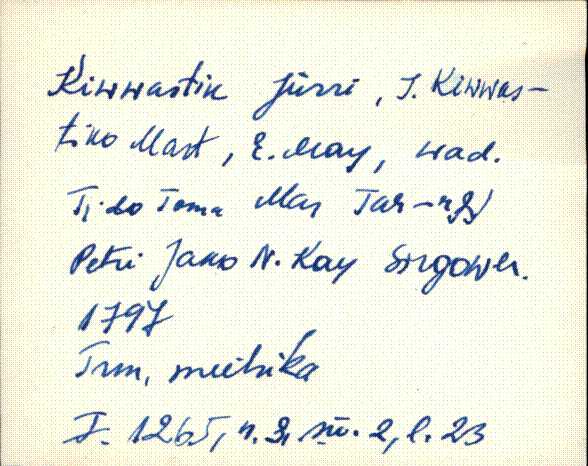 Kiwwastik Jürri, I. Kiwwas-
tiko Mart, E. May, wad.
Tido Toma May Tar-
Petri Jako N. Kay Sirgower.
1797
Trm, meelnika
F. 1265, n. 3, sü. 2, l. 23